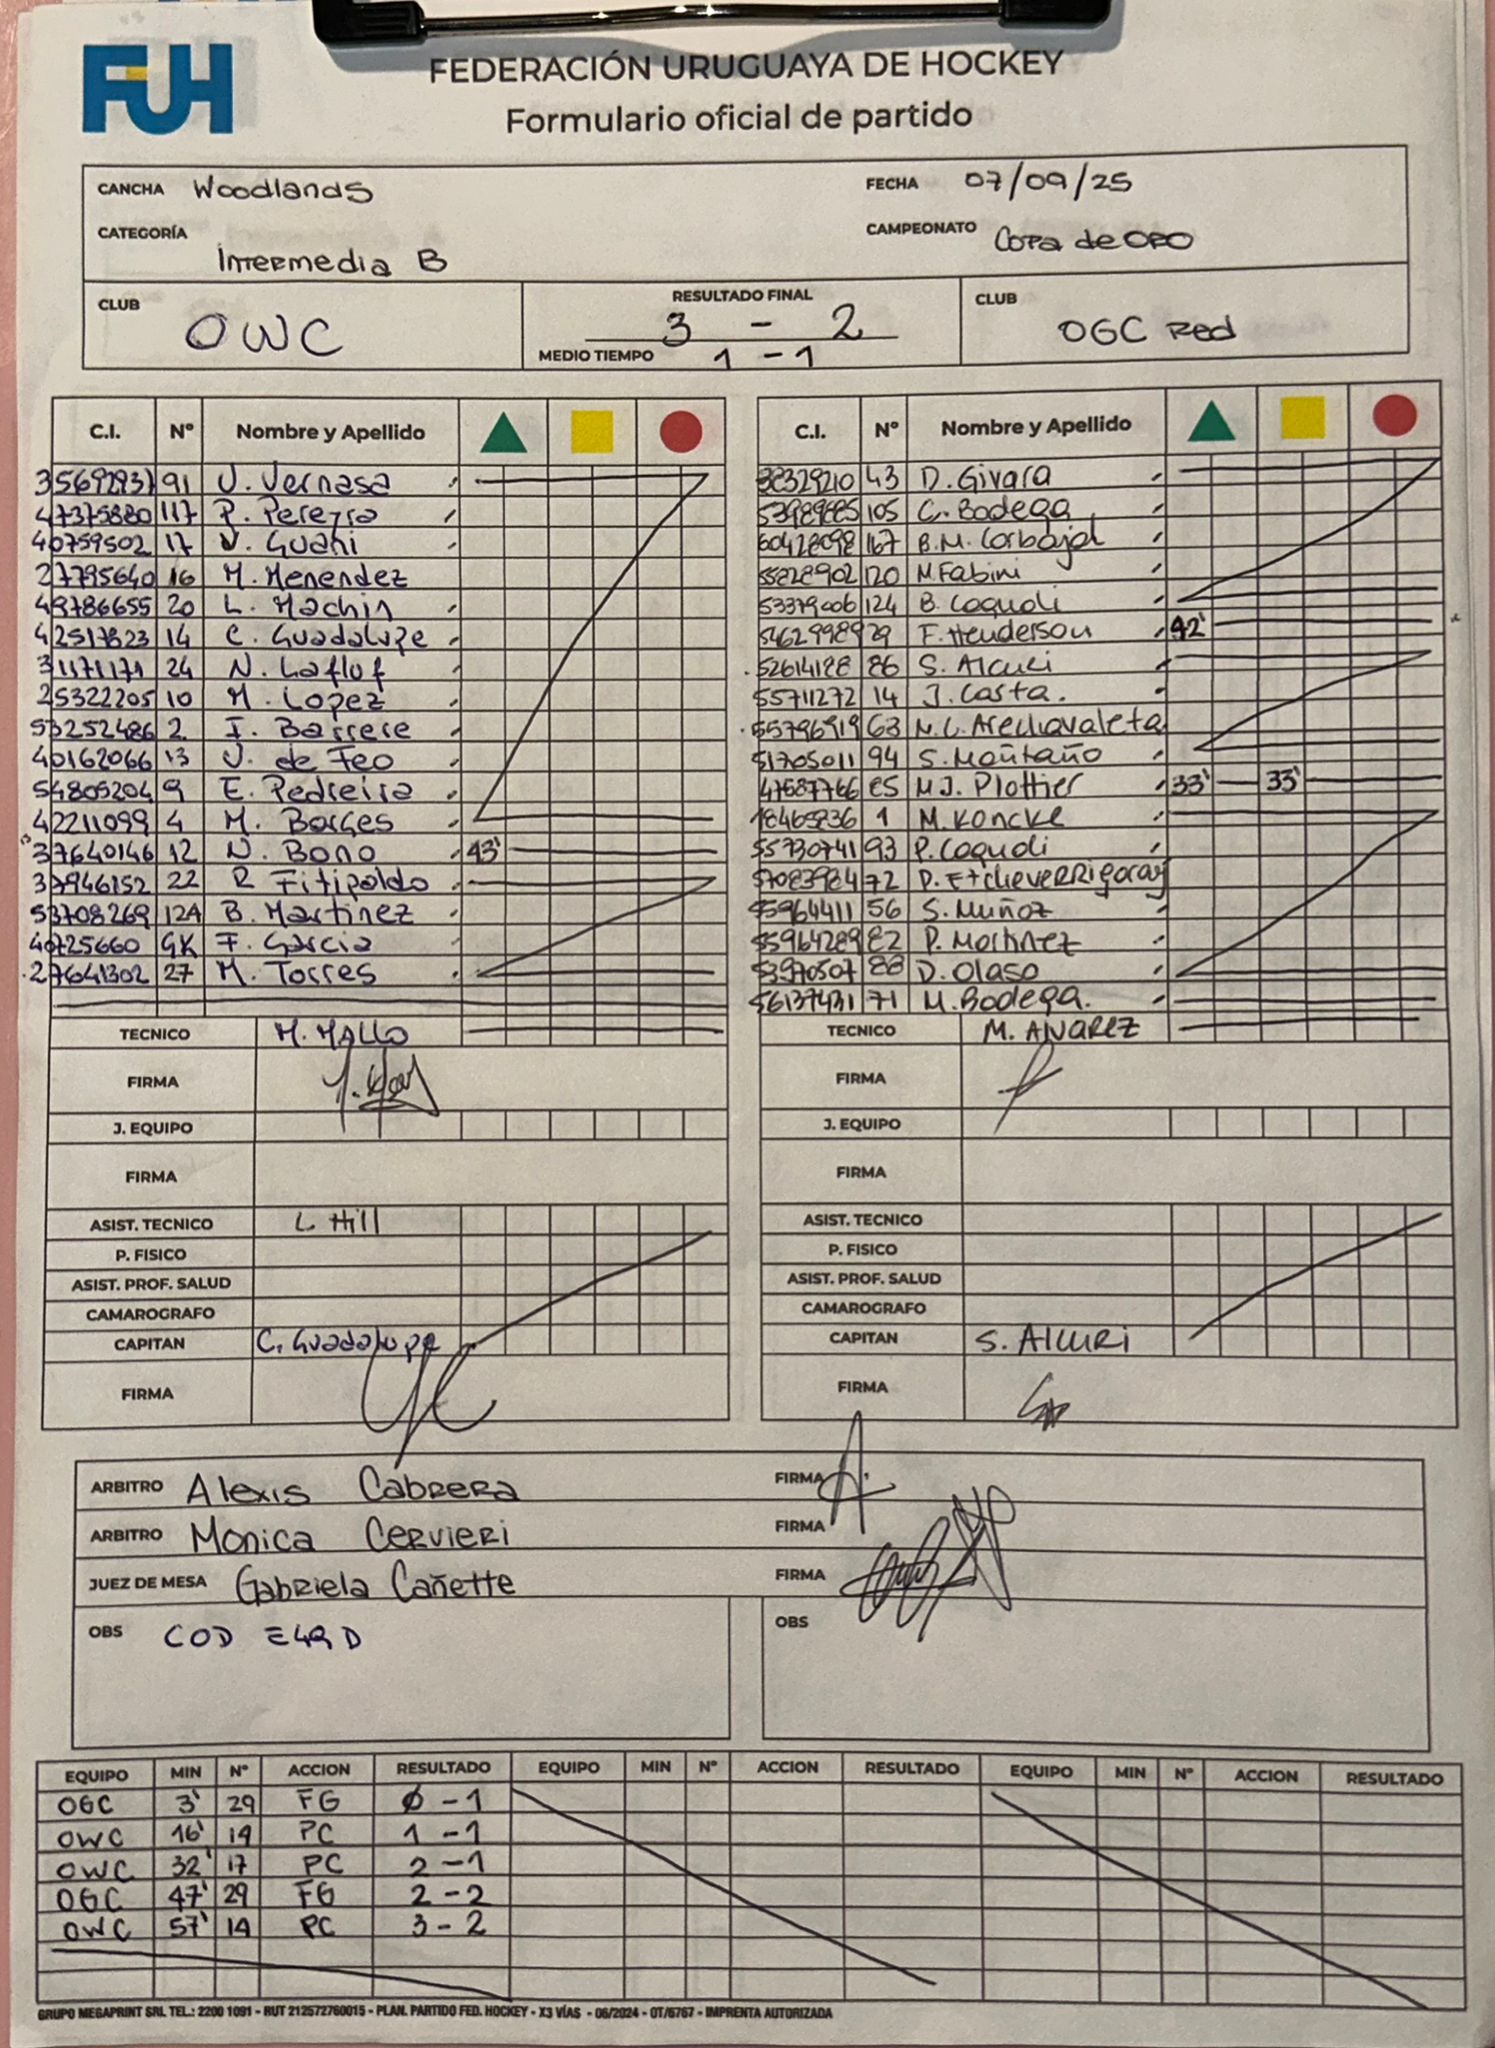 FUH
FEDERACIÓN URUGUAYA DE HOCKEY
Formulario oficial de partido
CANCHA Woodlands FECHA 07/09/25
CATEGORÍA Intermedia B CAMPEONATO Copa de oro
CLUB OWC RESULTADO FINAL 3 - 2 CLUB OGC Red
MEDIO TIEMPO 1 - 1
C.I. Nº Nombre y Apellido
35692937 91 V. Vernasa
47375880 117 P. Pereyra
40759502 17 V. Guani
27795640 16 M. Menendez
49786655 20 L. Machin
42517823 14 C. Guadalupe
31171171 24 N. Laflof
25322205 10 M. Lopez
53252486 2 I. Barrere
40162066 13 V. de Feo
54805204 9 E. Pedreira
42211099 4 M. Borges
37640146 12 N. Bono 43'
37946152 22 R Fitipaldo
53708269 12A B. Martinez
40725660 GK F. Garcia
27641302 27 M. Torres
TECNICO M. MALLO
FIRMA
J. EQUIPO
FIRMA
ASIST. TECNICO L Hill
P. FISICO
ASIST. PROF. SALUD
CAMAROGRAFO
CAPITAN C. Guadalupe
FIRMA
C.I. Nº Nombre y Apellido
43 D. Givara
53989885 105 C. Bodega
60428098 167 B.M. Carbajal
55828902 120 M Fabini
53379006 124 B. Coqudi
54629989 29 F. Henderson 42'
52614188 86 S. Alcuri
55711272 14 J. Casta.
55796919 63 M.C. Arechavaleta
51705011 94 S. Montaño
47587766 85 M J. Plottier 33' 33'
18465836 1 M. Koncke
55730741 93 P. Coqudi
57083984 72 P. Etcheverrigaray
55964411 56 S. Muñoz
55964289 82 P. Martinez
53970507 88 D. Olaso
56137431 71 M. Bodega.
TECNICO M. ALVAREZ
FIRMA
J. EQUIPO
FIRMA
ASIST. TECNICO
P. FISICO
ASIST. PROF. SALUD
CAMAROGRAFO
CAPITAN S. Alcuri
FIRMA
ARBITRO Alexis Cabrera FIRMA
ARBITRO Monica Cervieri FIRMA
JUEZ DE MESA Gabriela Cañette FIRMA
OBS COD E49D OBS
EQUIPO MIN Nº ACCION RESULTADO EQUIPO MIN Nº ACCION RESULTADO EQUIPO MIN Nº ACCION RESULTADO
OGC 3' 29 FG Ø - 1
OWC 16' 19 PC 1 - 1
OWC 32' 17 PC 2 - 1
OGC 47' 29 FG 2 - 2
OWC 57' 14 PC 3 - 2
GRUPO MEGAPRINT SRL TEL.: 2200 1091 - RUT 212572760015 - PLAN. PARTIDO FED. HOCKEY - X3 VÍAS - 06/2024 - OT/6767 - IMPRENTA AUTORIZADA